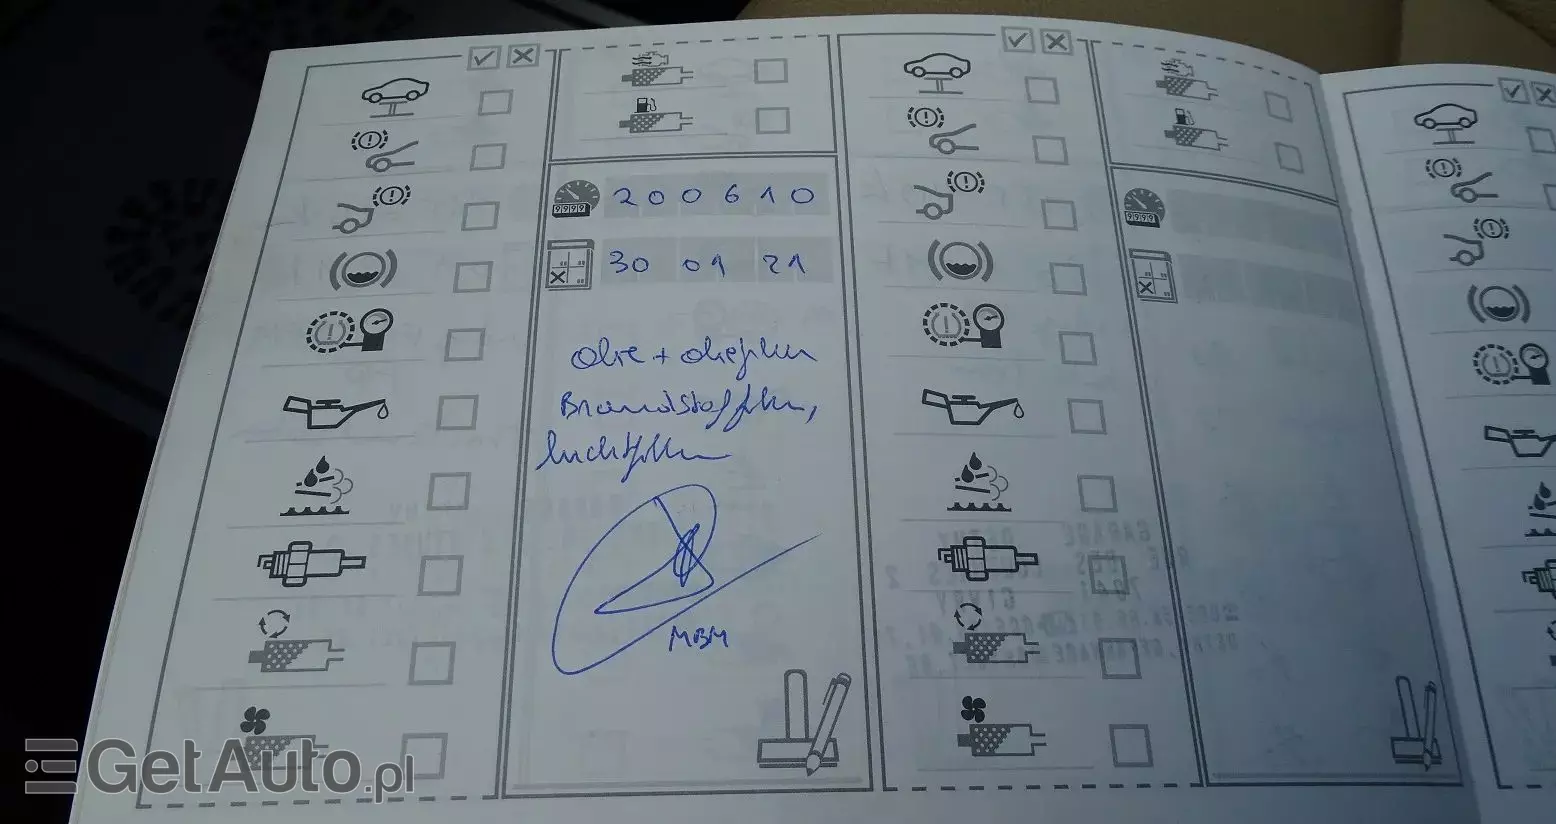 9999
200610
30 01 21
olie + oliefilter
Brandstoffilter,
luchtfilter
MBM
9999
9999
GetAuto.pl